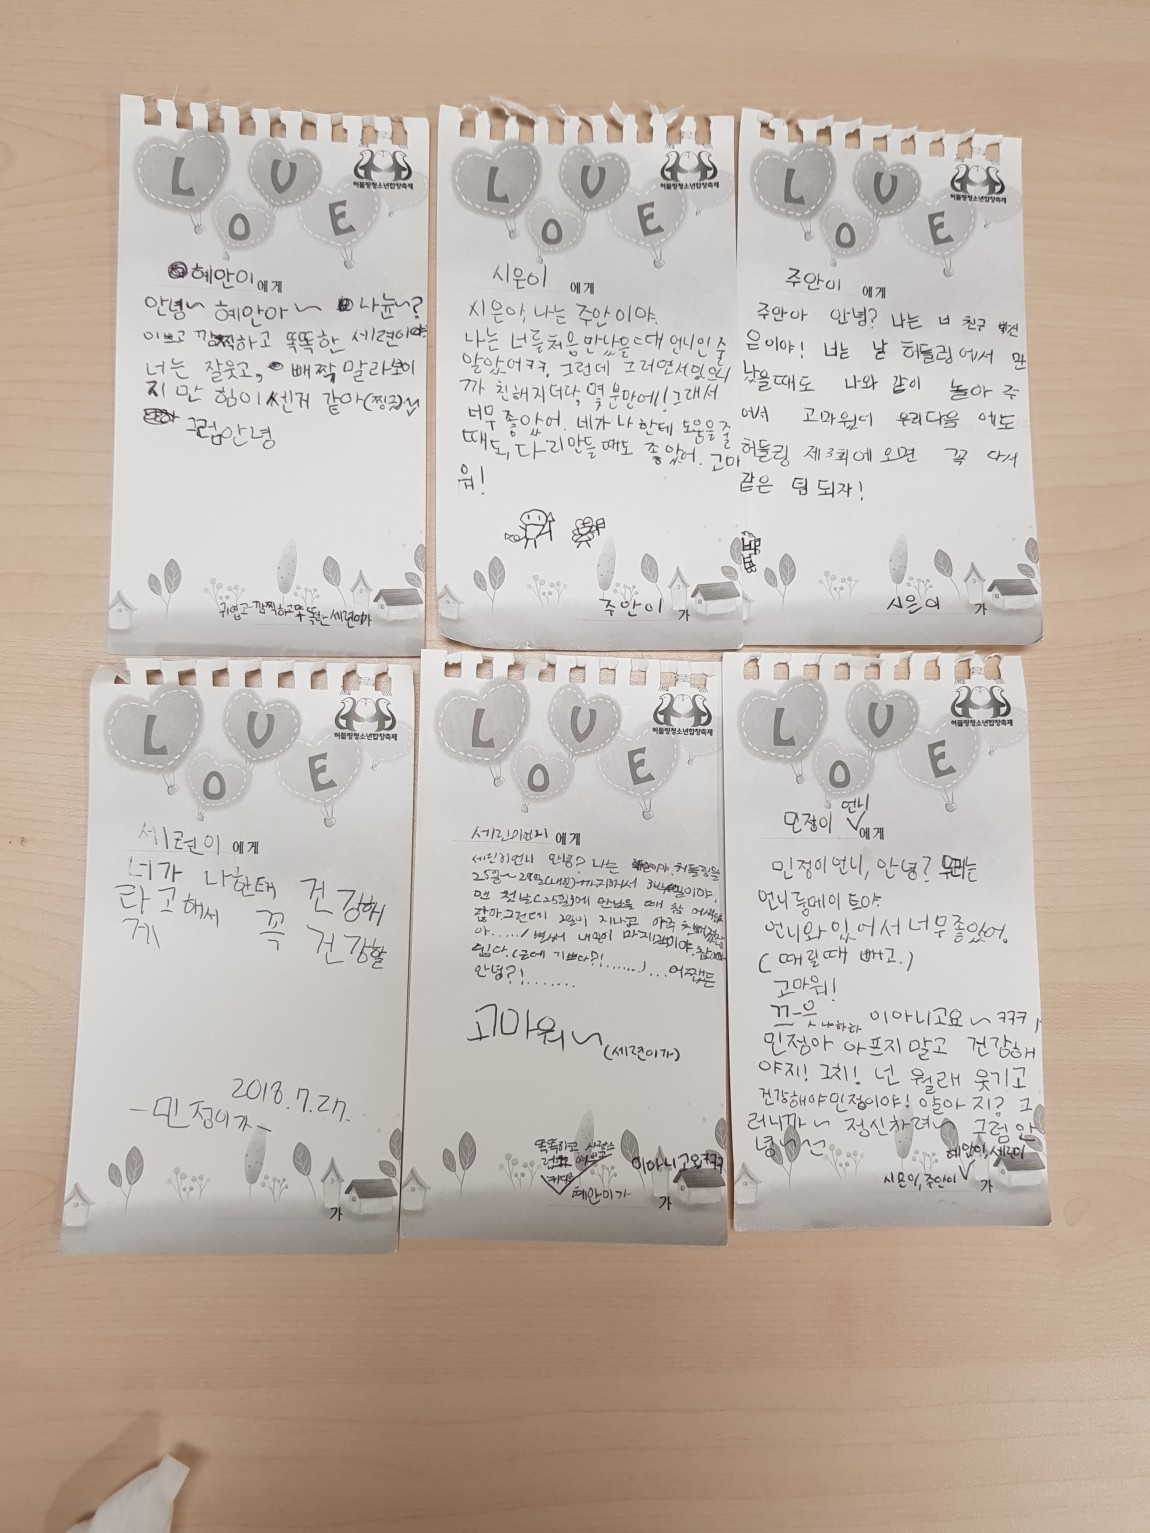 LOVE
허들링청소년합창축제
혜안이에게
안녕~ 혜안아~ 나뉸~?
이쁘고 깜찍하고 똑똑한 세련이야
너는 잘웃고, 빼짝 말라보이
지만 힘이 쎈거 같아(찡긋)
그럼안녕
귀엽고 깜찍하고 똑똑한 세련이가
LOVE
허들링청소년합창축제
시은이에게
시은아, 나는 주안이야.
나는 너를 처음 만났을때 언니인 줄
알았어ㅋㅋ. 그런데 그러면서있으니
까 친해지더닥, 몇 분만에! 그래서
너무 좋았어. 네가 나한테 도움을 줄
때도, 다리만들 때도 좋았어. 고마
워!
주안이가
LOVE
허들링청소년합창축제
주안이에게
주안아 안녕? 나는 너 친구 시
은이야! 너는 날 허들링에서 만
났을때도 나와 같이 놀아 주
어서 고마웠어 우리다음에도
허들링 제3회에 오면 꼭 다시
같은 팀 되자!
시은이가
LOVE
허들링청소년합창축제
세련이에게
너가 나한태 건강해
라고해서 꼭 건강할
게
2018.7.27.
-민정이가-
가
LOVE
허들링청소년합창축제
에게
안녕? 나는 허들링을
25일~28일(내일)까지해서
맨 첫날(25일)에 만났을 때 참
잖아.그런데 2일이 지나고 아주
아...../ 벌써 내일이 마지막이야.
쉽다.(근데 기쁘다?!......)...어쨌든
안녕?!.......
고마워~(세련이가)
똑똑하고
이아니고요ㅋㅋㅋ
혜안이가
LOVE
허들링청소년합창축제
민정이언니에게
민정이언니, 안녕? 우리는
언니룸메이트야.
언니와 있어서 너무좋았어.
(때릴때 빼고.)
고마워!
끄-읕 이아니고요~ㅋㅋㅋ,
민정아 아프지말고 건강해
야지! 그치! 넌 월래 웃기고
건강해야민정이야! 알아 지? 그
러니까~ 정신차려~ 그럼 안
녕~
혜안이, 세련이
시은이, 주안이가